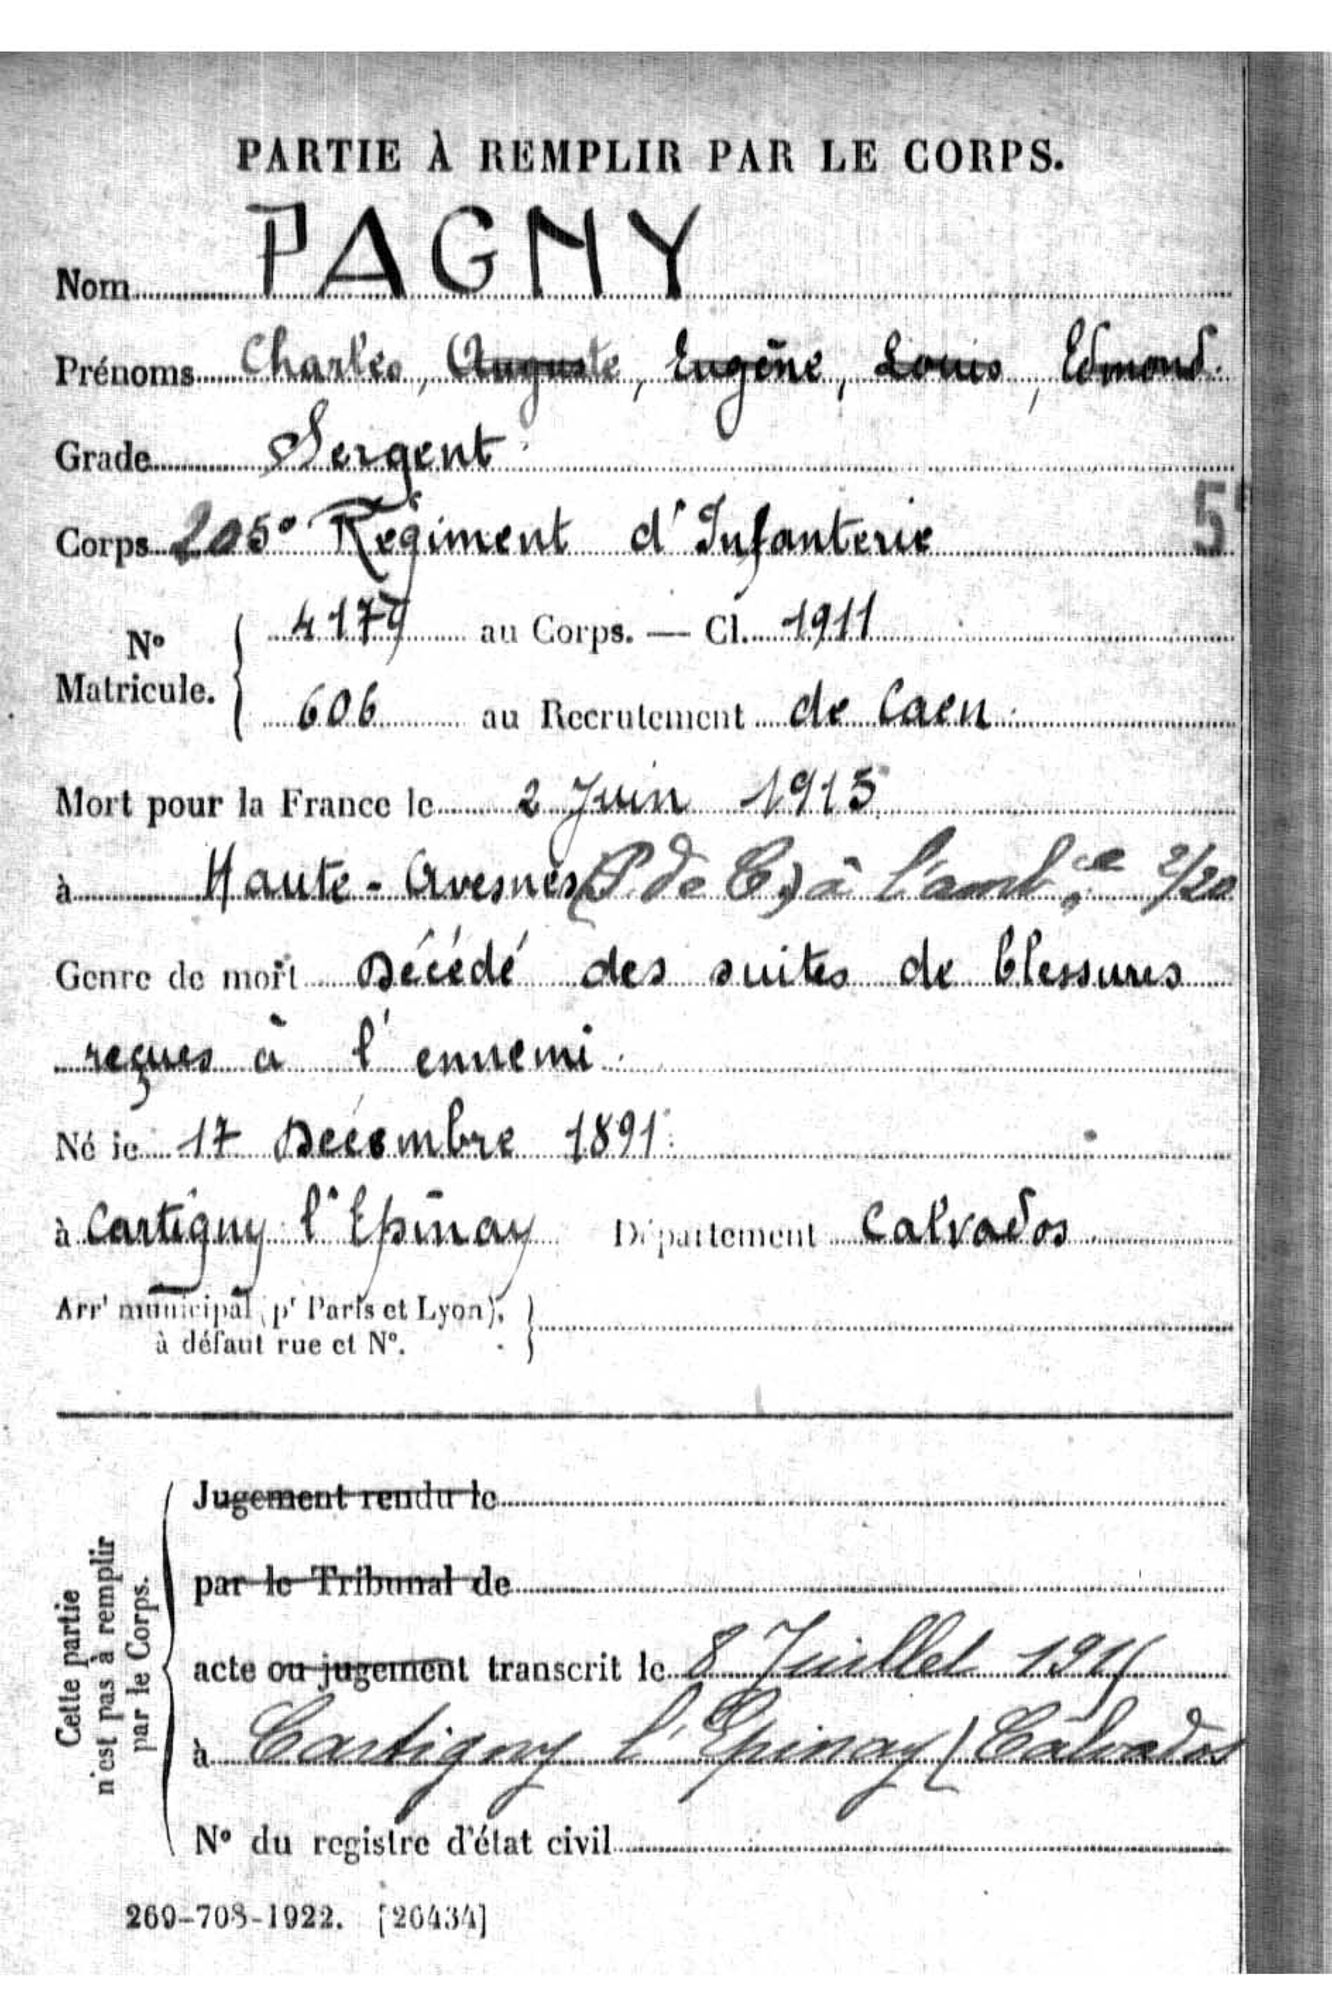 PARTIE À REMPLIR PAR LE CORPS.
Nom PAGNY
Prénoms Charles, Auguste, Eugène, Louis, Edmond.
Grade Sergent
Corps 205e Régiment d'Infanterie
5
N° Matricule. 4179 au Corps. — Cl. 1911
606 au Recrutement de Caen.
Mort pour la France le 2 Juin 1915
à Haute-Avesnes (P. de C.) à l'ambce 2/20
Genre de mort Décédé des suites de blessures
reçues à l'ennemi.
Né le 17 Décembre 1891
à Cartigny l'Epinay Département Calvados
Arrt municipal (pr Paris et Lyon),
à défaut rue et N°.
Cette partie
n'est pas à remplir
par le Corps.
Jugement rendu le
par le Tribunal de
acte ou jugement transcrit le 8 Juillet 1915
à Cartigny l'Epinay (Calvados
N° du registre d'état civil
269-708-1922. [26434]